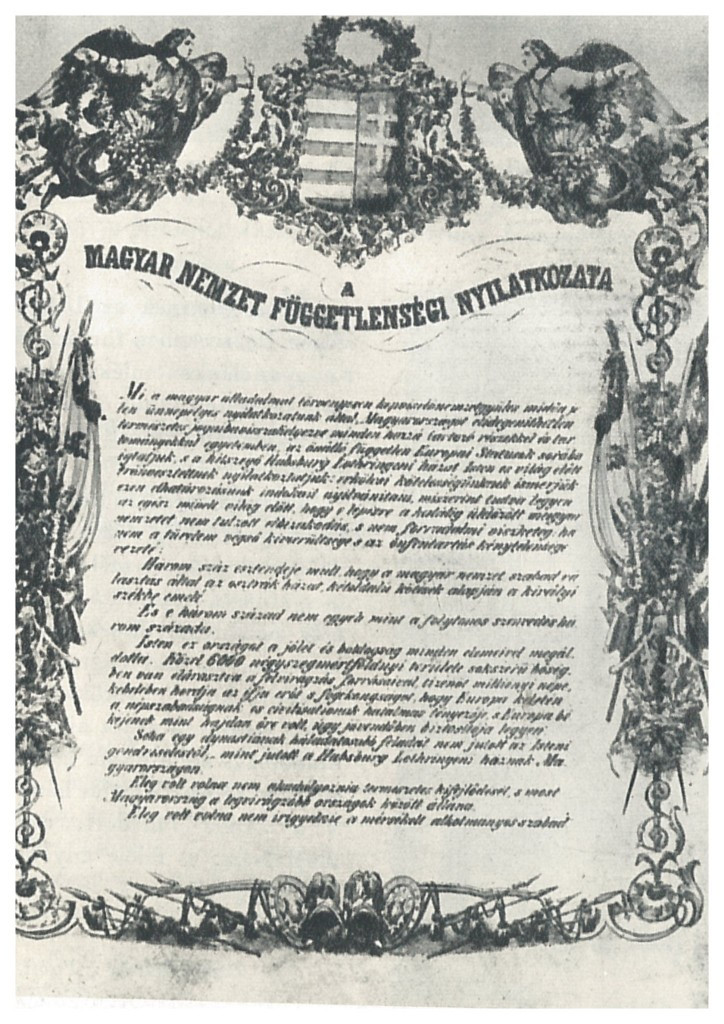 A
MAGYAR NEMZET FÜGGETLENSÉGI NYILATKOZATA
Mi a magyar álladalmat törvényesen képviselő nemzetgyűlés midőn je-
len ünnepélyes nyilatkozatunk által, Magyarországot elidegeníthetlen
természetes jogaiba visszahelyezve minden hozzá tartozó részekkel és tar-
tományokkal egyetemben, az önálló független Európai Státusok sorába
igtatjuk, s a hitszegő Habsburg Lothringeni házat Isten és világ előtt
trónvesztettnek nyilatkoztatjuk: erkölcsi kötelességünknek ismerjük
ezen elhatározásunk indokait nyilvánítani, miszerint tudva legyen
az egész művelt világ előtt, hogy e lépésre a halálig üldözött magyar
nemzetet nem túlzott elbizakodás, s nem forradalmi viszketeg, ha-
nem a türelem végső kimerültsége s az önfentartás kénytelensége
vezeté:
Három száz esztendeje mult, hogy a magyar nemzet szabad vá-
lasztás által az osztrák házat, kétoldalú kötések alapján a királyi
székbe emelé.
És e három század nem egyéb mint a folytonos szenvedés há-
rom százada.
Isten ez országot a jólét és boldogság minden elemeivel megál-
dotta. Közel 6000 négyszegmértföldnyi területe sokszerű bőség-
ben van elárasztva a felvirágzás forrásaival, tizenöt milliónyi népe,
kebelében hordja az ifju erőt s fogékonyságot, hogy Europa keletén
a népszabadságnak és civilisatiónak hatalmas tényezője, s Europa bé-
kéjének mint hajdan őre volt, úgy jövendőben biztosítója legyen.
Soha egy dynastiának háladatosabb feladat nem jutott az Isteni
gondviseléstől, mint jutott a Habsburg Lothringeni háznak, Ma-
gyarországon.
Elég volt volna nem akadályoznia természetes kifejlődését, s most
Magyarország a legvirágzóbb országok között állana.
Elég volt volna nem irigyelnie a mérsékelt alkotmányos szabad